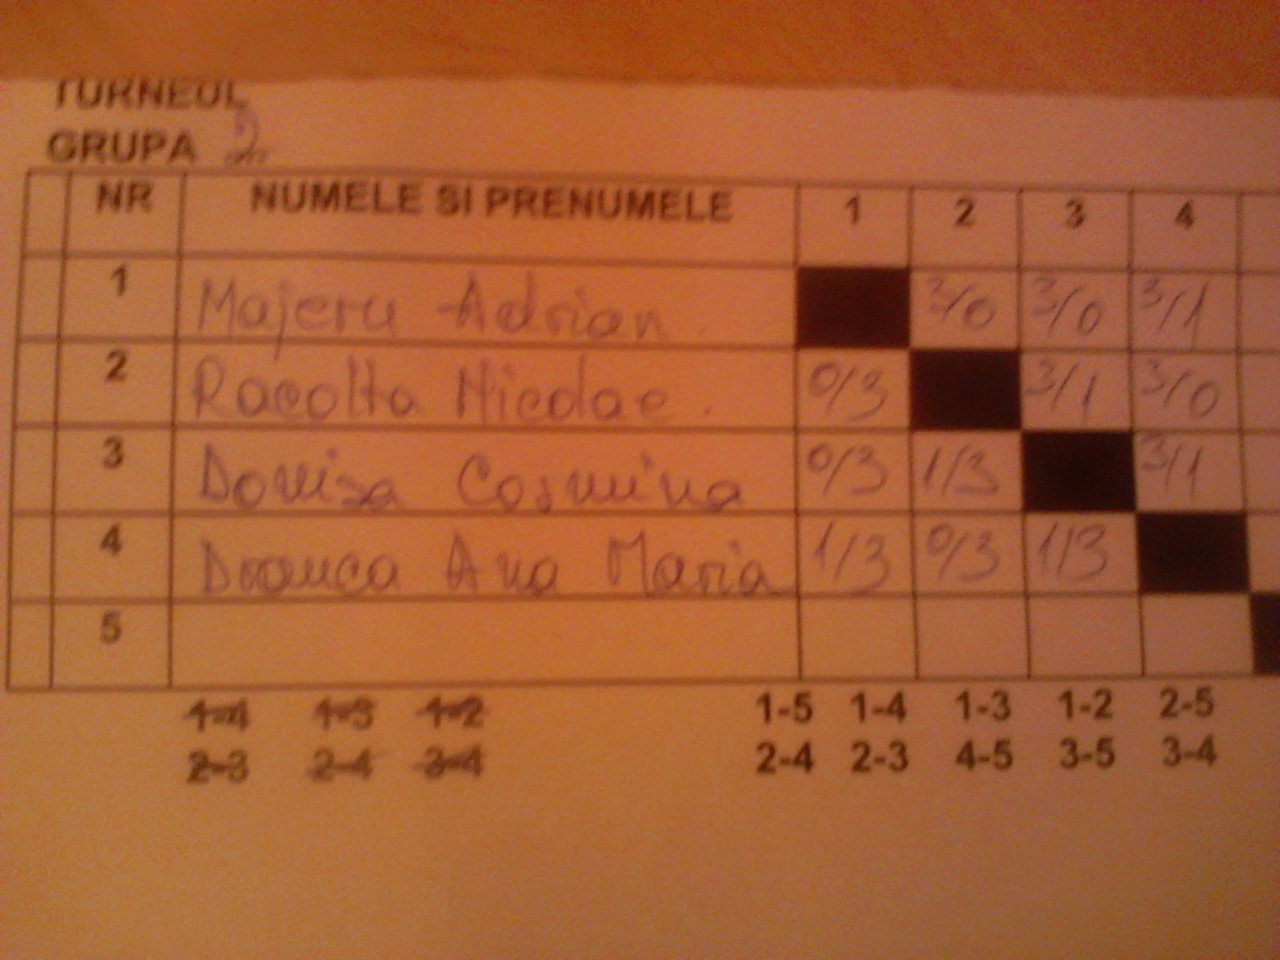 TURNEUL
GRUPA 2
NR NUMELE SI PRENUMELE 1 2 3 4
1 Majeru Adrian. 3/0 3/0 3/1
2 Racolta Nicolae. 0/3 3/1 3/0
3 Doniza Cosmina 0/3 1/3 3/1
4 Drauca Ana Maria 1/3 0/3 1/3
5
1-4 1-3 1-2 1-5 1-4 1-3 1-2 2-5
2-3 2-4 3-4 2-4 2-3 4-5 3-5 3-4